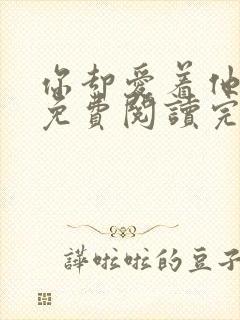 你却愛着他
免費閱讀完
譁啦啦的豆子